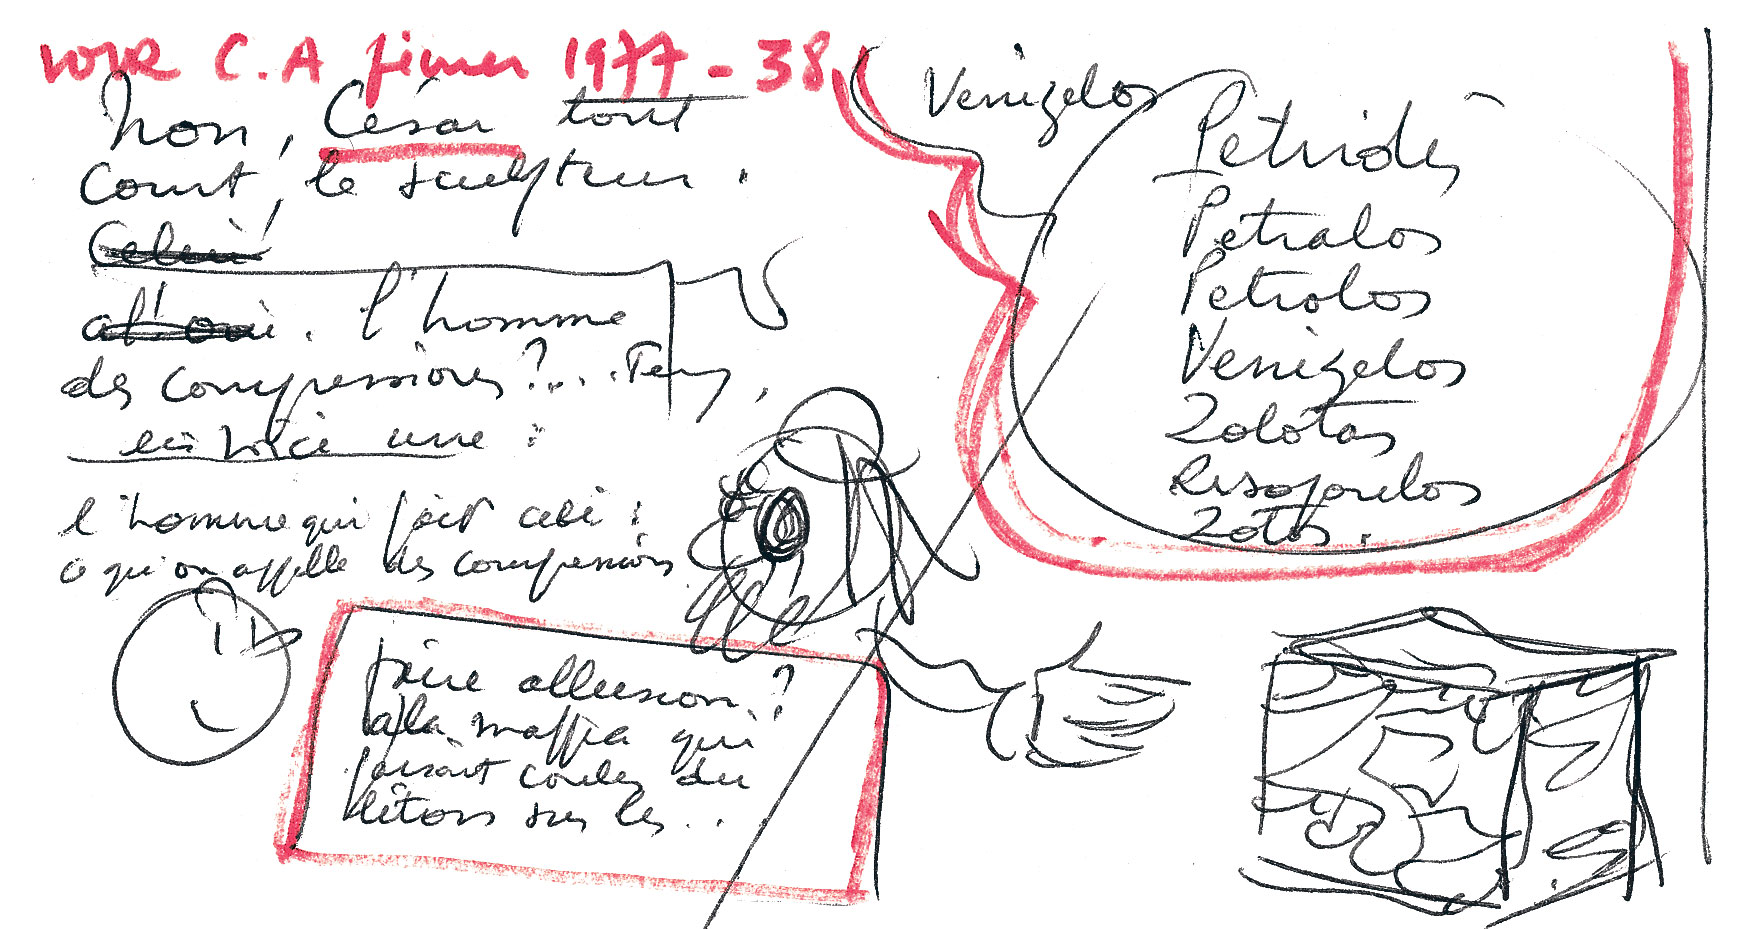 VOIR C.A février 1977 - 38
Non, César tout
court, le sculpteur.
Celui
l'homme
des compressions ?... Tenez,
en voici une :
l'homme qui fait ceci :
ce qu'on appelle des compressions
faire allusion ?
à la maffia qui
faisait couler du
béton sur les ..
Venizelos
Petridès
Petralos
Petrolos
Venizelos
Zolotas
Zotos.